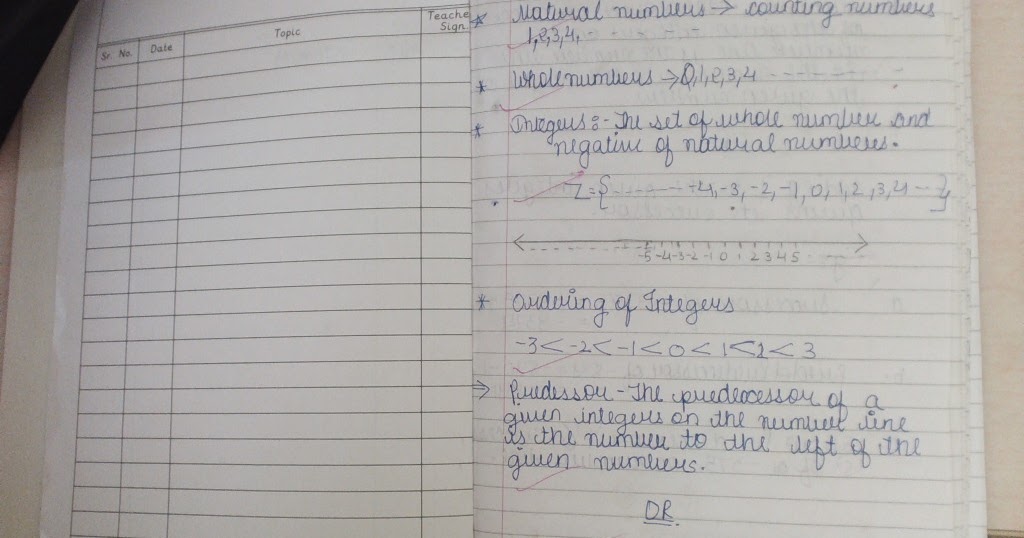 Sr. No.
Date
Topic
Teache
Sign
* Natural numbers → counting numbers
1,2,3,4, - - - - - -
* Whole numbers → 0,1,2,3,4 - - - - - - -
* Integers :- The set of whole number and
negative of natural numbers.
Z = { - - - - - - -4, -3, -2, -1, 0, 1, 2, 3, 4 - - }
-5 -4 -3 -2 -1 0 1 2 3 4 5
* Ordering of Integers
-3 < -2 < -1 < 0 < 1 < 2 < 3
⇒ Predessor - The predecessor of a
given integers on the number line
is the number to the left of the
given numbers.
OR